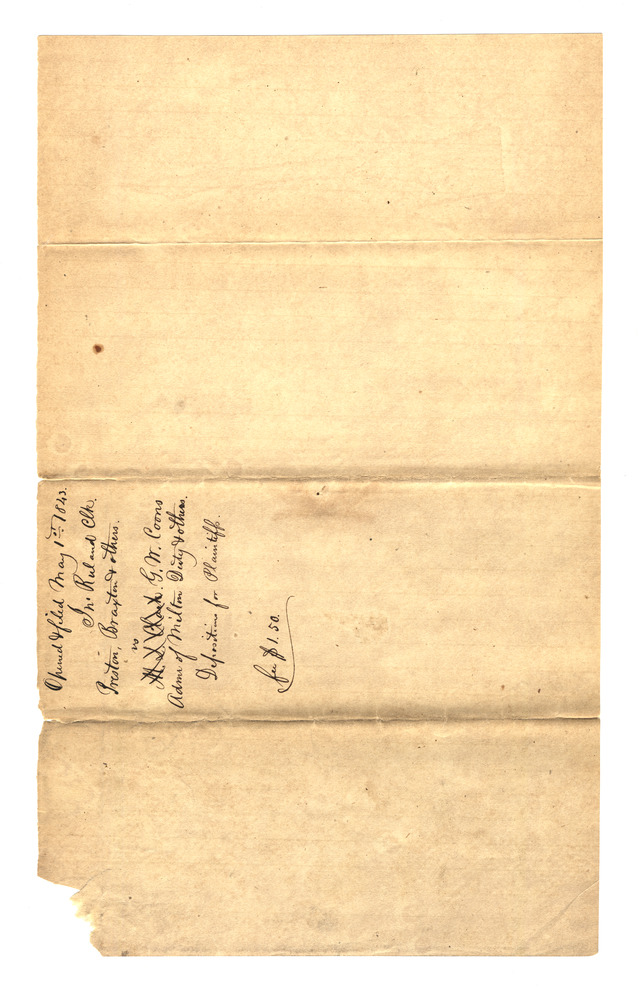 Opened & filed May 1st 1843.
Jno Ruland Clk.
Preston, Braxton & others.
vs
G. W. Coons
Admr of Milton Duty & others.
Depositions for Plaintiffs.
fee $1.50.